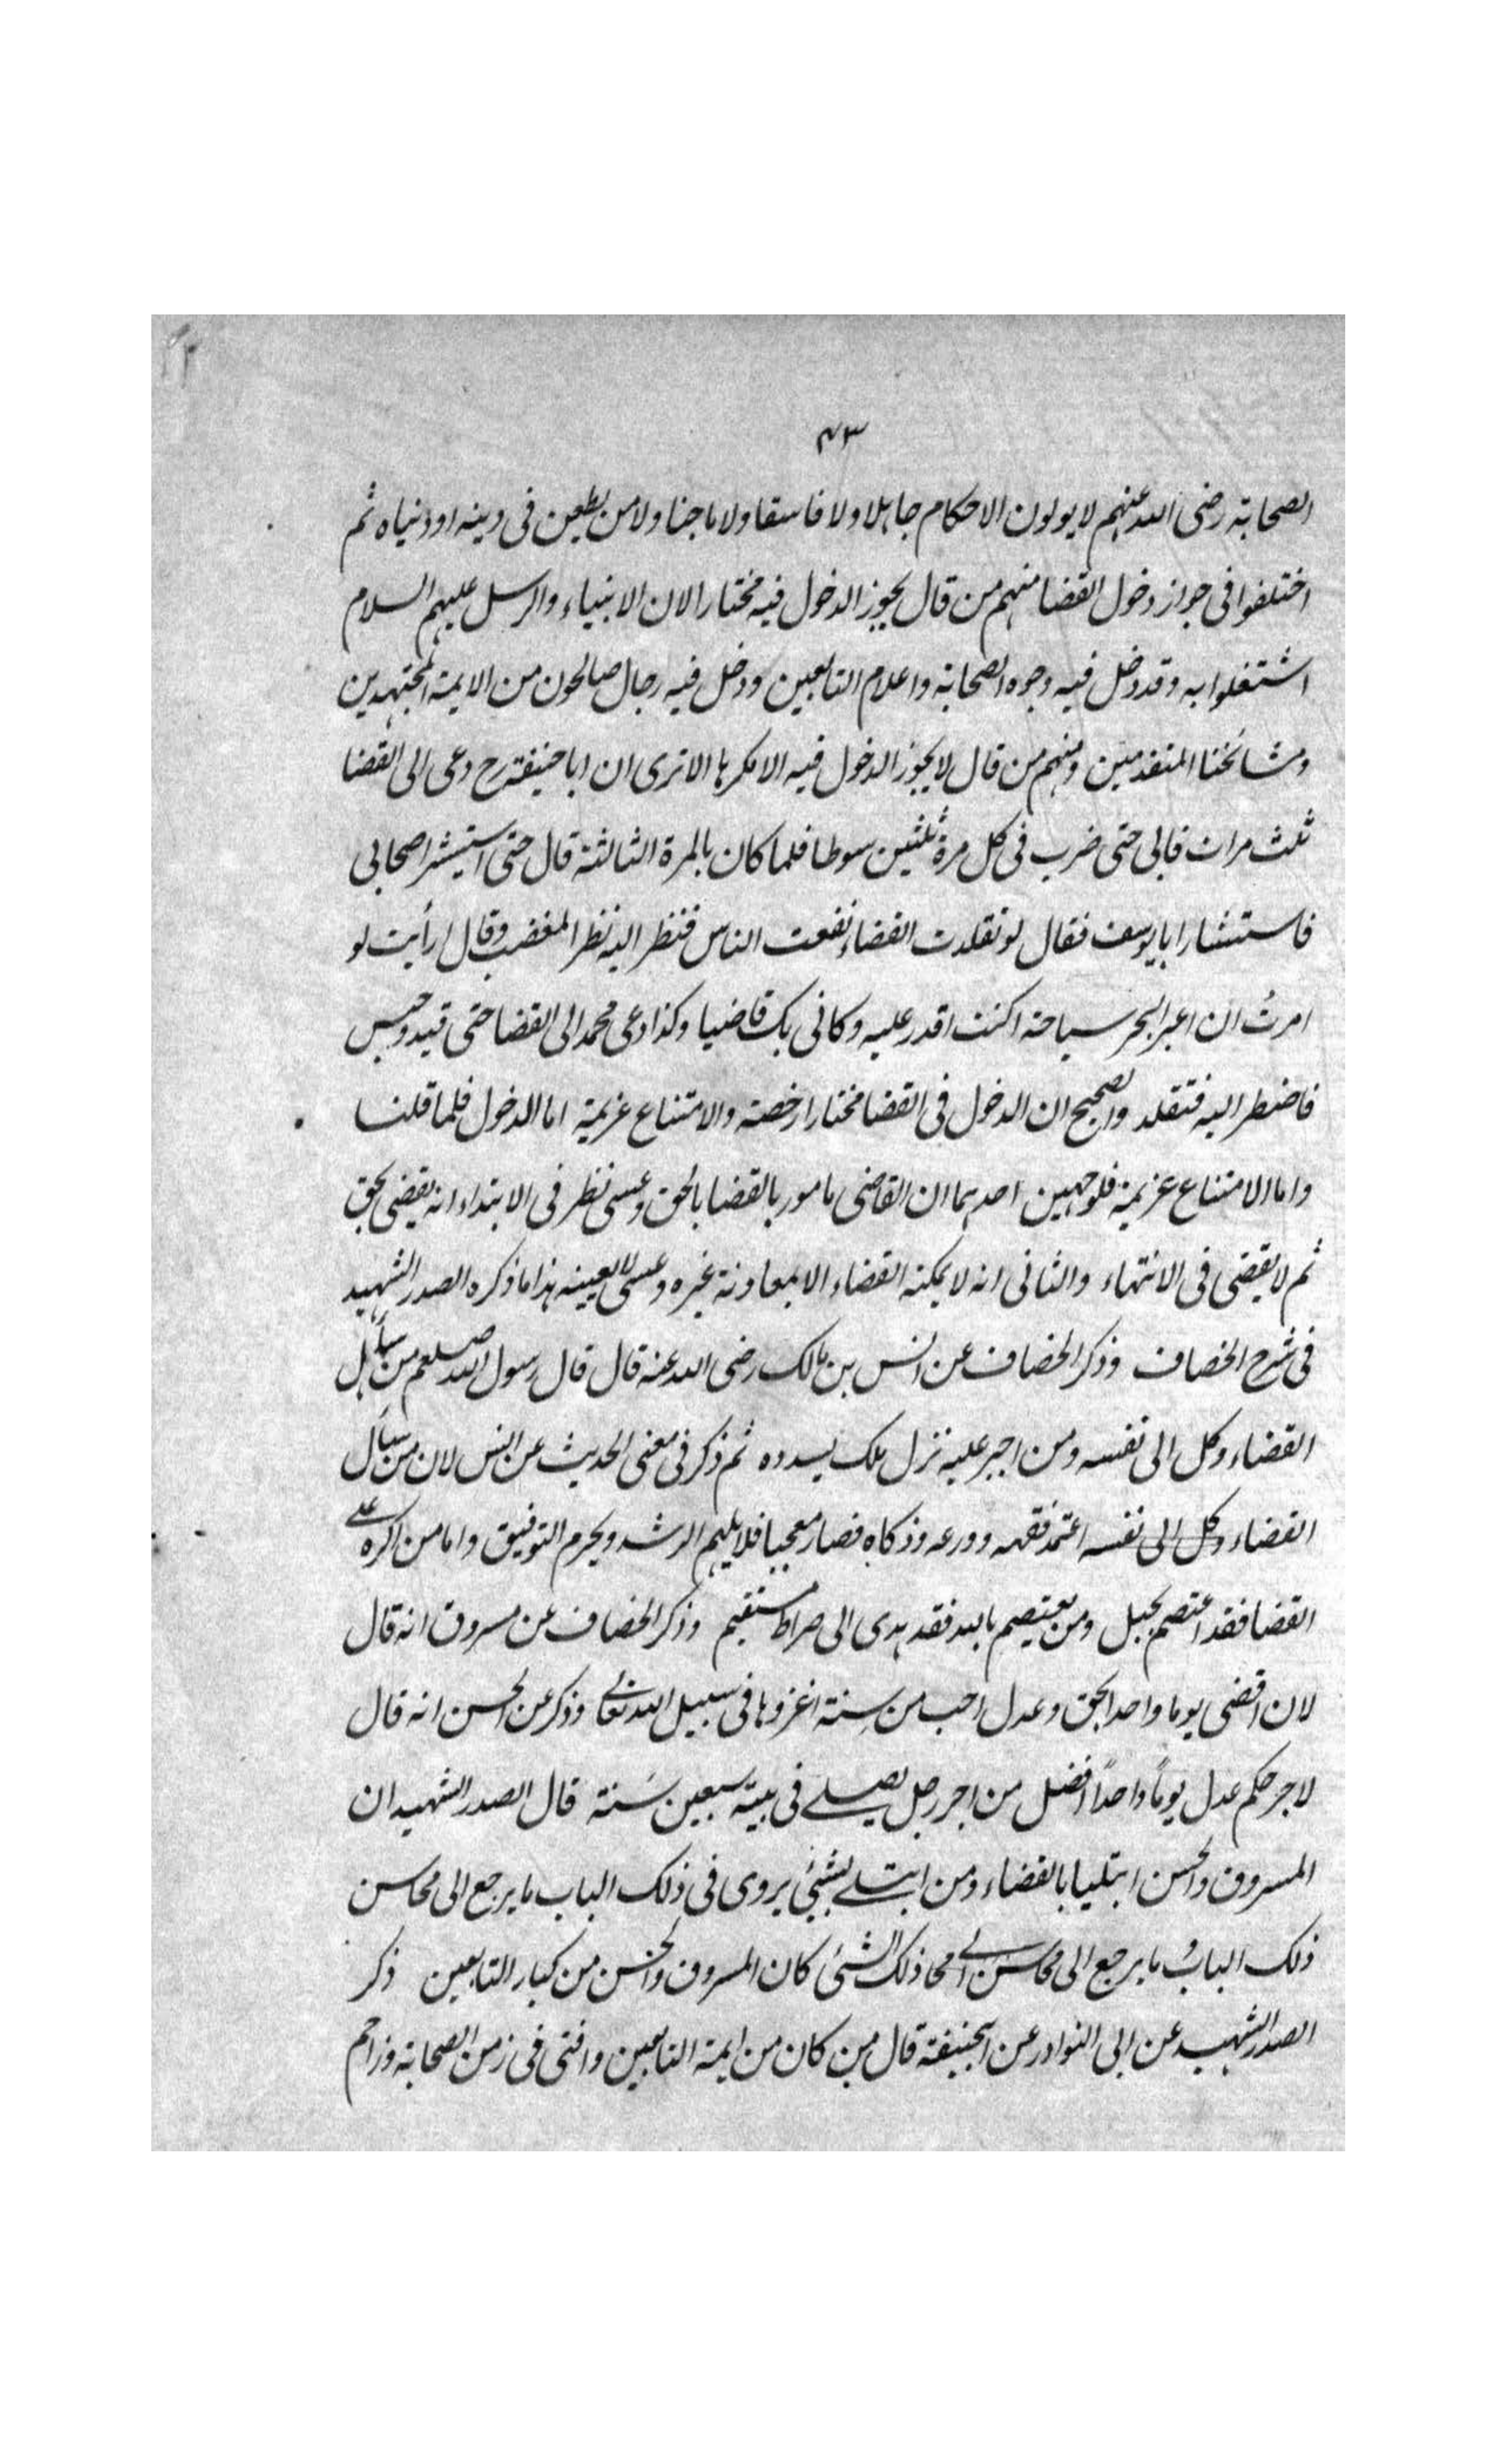 ٧٣
الصحابة رضى الله عنهم لا يولون الاحكام جاهلا ولا فاسقا ولا ماجنا ولا من يطعن فى دينه او دنياه ثم
اختلفوا فى جواز دخول القضا منهم من قال يجوز الدخول فيه مختارا لان الانبياء والرسل عليهم السلام
اشتغلوا به وقد دخل فيه وجوه الصحابة واعلام التابعين ودخل فيه رجال صالحون من الايمة المجتهدين
ومشائخنا المتقدمين ومنهم من قال لا يجوز الدخول فيه الا مكرها الا ترى ان ابا حنيفة رح دعى الى القضا
ثلث مرات فابى حتى ضرب فى كل مرة ثلثين سوطا فلما كان بالمرة الثالثة قال حتى استيشر اصحابى
فاستشار ابا يوسف فقال لو تقلدت القضاء نفعت الناس فنظر اليه نظر المغضب وقال ارأيت لو
امرتُ ان اعبر البحر سباحة اكنت اقدر عليه وكانى بك قاضيا وكذا دعى محمد الى القضا حتى قيد وحبس
فاضطر اليه فتقلد والصحيح ان الدخول فى القضا مختارا رخصة والامتناع عزيمة اما الدخول فلما قلنا
واما الامتناع عزيمة فلوجهين احدهما ان القاضى مامور بالقضا بالحق وعسى نظر فى الابتداء انه يقضى بحق
ثم لا يقضى فى الانتهاء والثانى انه لا يمكنه القضاء الا بمعاونة غيره وعسى لا يعينه هذا ما ذكره الصدر الشهيد
فى شرح الخصاف وذكر الخصاف عن انس بن مالك رضى الله عنه قال قال رسول الله صلعم من سأل
القضاء وكل الى نفسه ومن اجبر عليه نزل ملك يسدده ثم ذكر فى معنى الحديث عن انس لان من سأل
القضاء وكل الى نفسه اعتمد فقهه وورعه وذكاه فصار معجبا فلا يلهم الرشد ويحرم التوفيق واما من اكره على
القضا فقد اعتصم بحبل ومن يعتصم بالله فقد هدى الى صراط مستقيم وذكر الخصاف عن مسروق انه قال
لان اقضى يوما واحدا بحق وعدل احب من سنة اغزوها فى سبيل الله تعالى وذكر عن الحسن انه قال
لاجر حكم عدل يوماً واحداً افضل من اجر رجل يصلے فى بيته سبعين سَنة قال الصدر الشهيد ان
المسروق والحسن ابتليا بالقضاء ومن ابتلے بشيئ يروى فى ذلك الباب ما يرجع الى محاسن
ذلك الباب ما يرجع الى محاسن ذلك الشئ كان المسروق والحسن من كبار التابعين ذكر
الصدر الشهيد عن ابى النوادر عن ابيحنيفة قال من كان من ايمة التابعين وافتى فى زمن الصحابة وزاحم